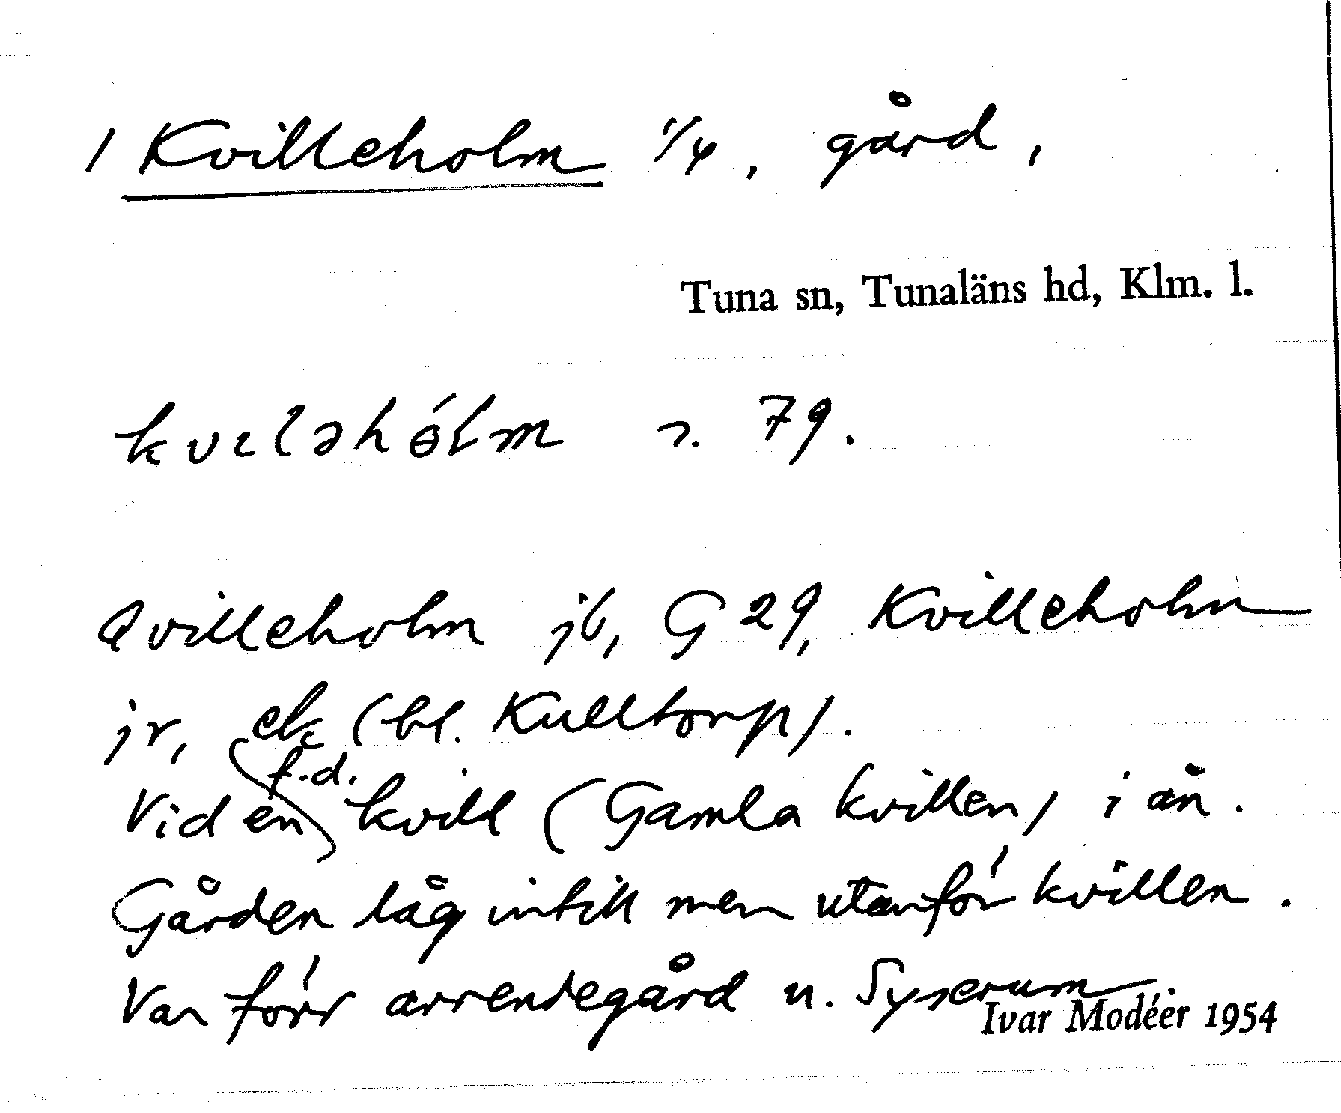 1 Kvilleholm 1/4, gård,
Tuna sn, Tunaläns hd, Klm. l.
kvɩləhólm s. 79.
Qvilleholm jb, G 29, Kvilleholm
jr, ek (bl. Kulltorp).
f.d.
Vid en kvill (Gamla kvillen) i ån.
Gården låg intill men utanför kvillen.
Var förr arrendegård u. Syserum.
Ivar Modéer 1954